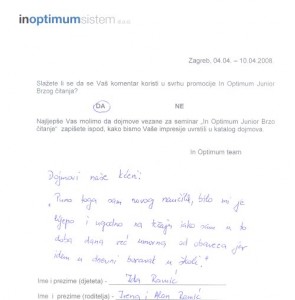 inoptimumsistem d.o.o.
Zagreb, 04.04. – 10.04.2008.
Slažete li se da se Vaš komentar koristi u svrhu promocije In Optimum Junior
Brzog čitanja?
DA NE
Najljepše Vas molimo da dojmove vezane za seminar „In Optimum Junior Brzo
čitanje" zapišete ispod, kako bismo Vaše impresije uvrstili u katalog dojmova.
In Optimum team
Dojmovi naše kćeri:
"Puno toga sam novog naučila, bilo mi je
lijepo i ugodno na tečaju iako sam u to
doba dana već umorna od obaveza jer
idem u dnevni boravak u školi."
Ime i prezime (djeteta) - Ida
Ime i prezime (roditelja) - Irena i Alan